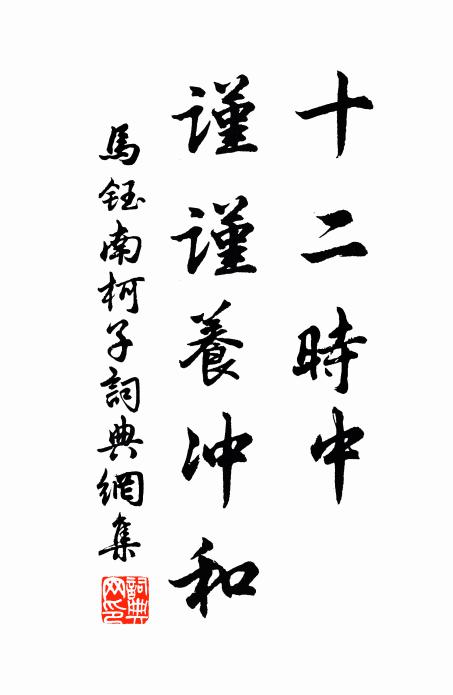 十二時中
謹謹養沖和
馬鈺南柯子詞典網集
詞典網印